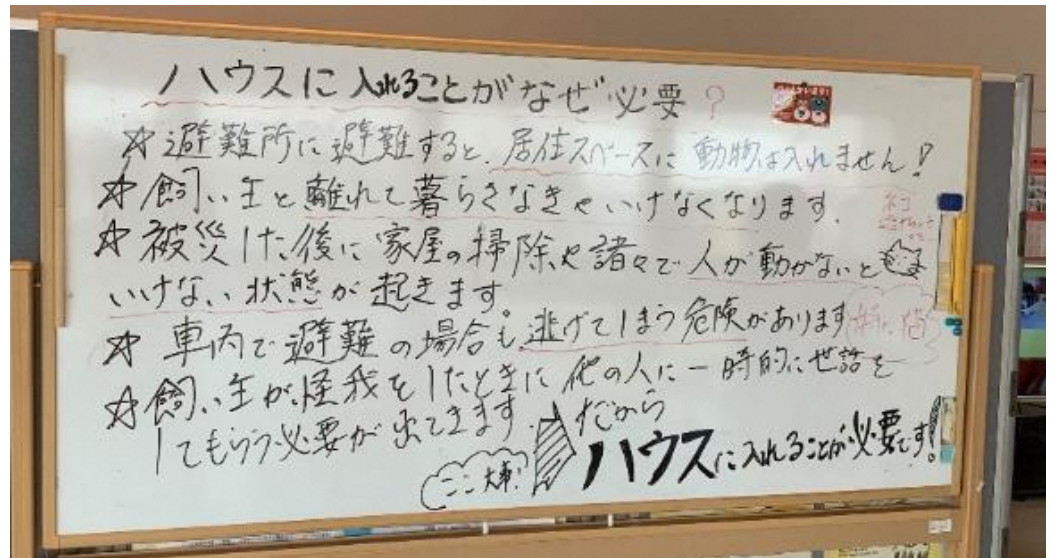 ハウスに入れることがなぜ必要?
☆避難所に避難すると、居住スペースに動物は入れません!
☆飼い主と離れて暮らさなきゃいけなくなります.
☆被災した後に家屋の掃除や諸々で人が動かないと
いけない状態が起きます。
☆車内で避難の場合も逃げてしまう危険があります
特に猫
☆飼い主が怪我をしたときに他の人に一時的に世話を
してもらう必要が出てきます.
ここ大事!
だから
ハウスに入れることが必要です!